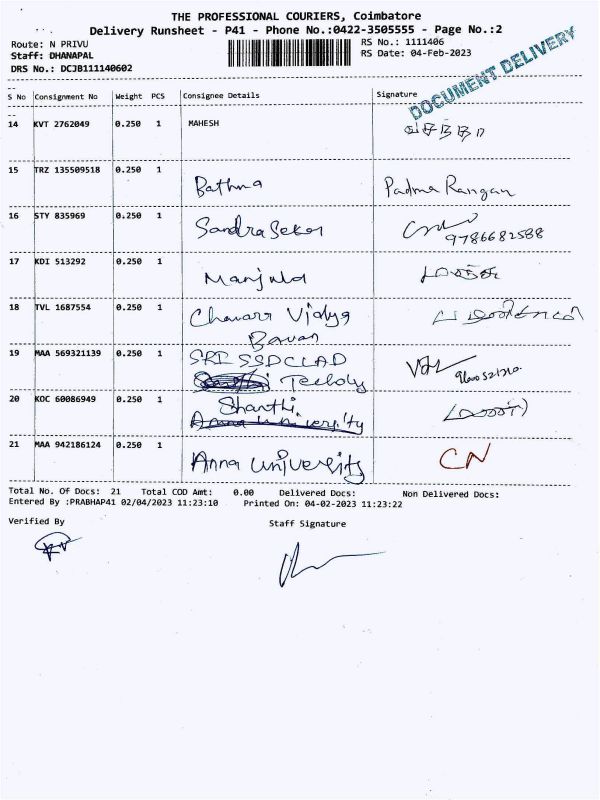 THE PROFESSIONAL COURIERS, Coimbatore
Delivery Runsheet - P41 - Phone No.:0422-3505555 - Page No.:2
Route: N PRIVU RS No.: 1111406
Staff: DHANAPAL RS Date: 04-Feb-2023
DRS No.: DCJB111140602
DOCUMENT DELIVERY
S No Consignment No Weight PCS Consignee Details Signature
14 KVT 2762049 0.250 1 MAHESH
15 TRZ 135509518 0.250 1 Bathma Padma Rangan
16 STY 835969 0.250 1 Sandra Sekar
9786682588
17 KDI 513292 0.250 1 Manjula
18 TVL 1687554 0.250 1 Vidya
Bavan
19 MAA 569321139 0.250 1 SRI
20 KOC 60086949 0.250 1 Shanthi
Anna University
21 MAA 942186124 0.250 1 Anna University CN
Total No. Of Docs: 21 Total COD Amt: 0.00 Delivered Docs: Non Delivered Docs:
Entered By :PRABHAP41 02/04/2023 11:23:10 Printed On: 04-02-2023 11:23:22
Verified By Staff Signature